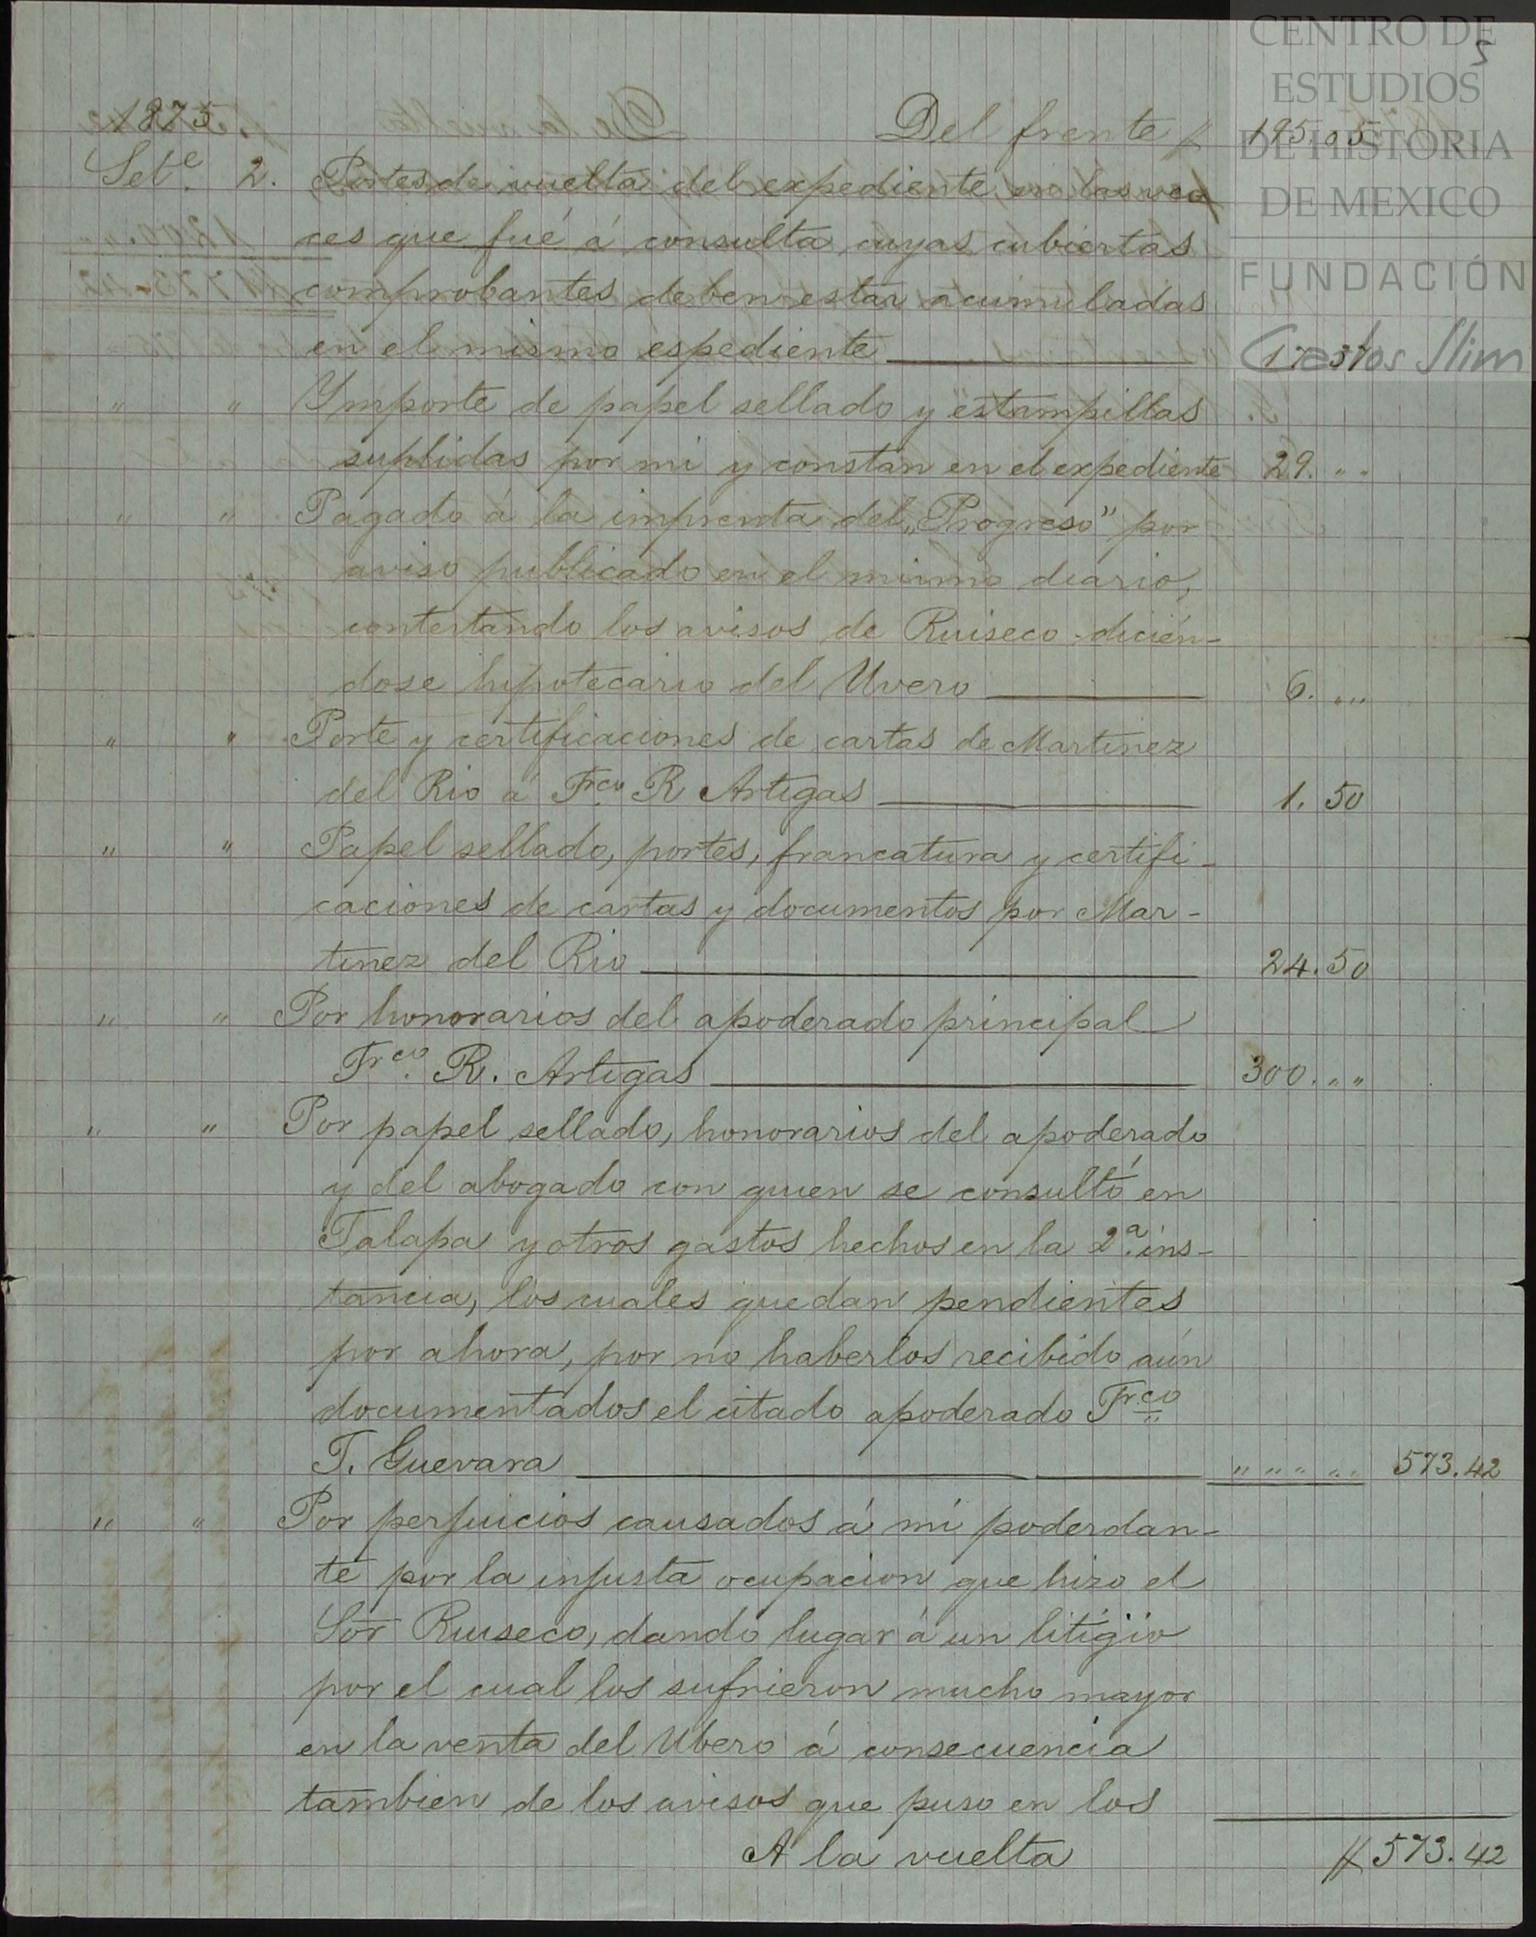 CENTRO DE
ESTUDIOS
DE HISTORIA
DE MEXICO
FUNDACIÓN
Carlos Slim
5
1875 Del frente $ 195.05
Sete. 2. Portes de vuelta del expediente, en las ve
ces que fué á consulta cuyas cubiertas
comprobantes deben estar acumuladas
en el mismo espediente 17.37
" " Ymporte de papel sellado y estampillas
suplidas por mi y constan en el expediente 29. " "
" " Pagado á la imprenta del „Progreso" por
aviso publicado en el mismo diario,
contestando los avisos de Ruiseco dicién-
dose hipotecario del Uvero 6. " "
" " Porte y certificaciones de cartas de Martinez
del Rio á Frco. R Artigas 1. 50
" " Papel sellado, portes, francatura y certifi-
caciones de cartas y documentos por Mar-
tinez del Rio 24.50
" " Por honorarios del apoderado principal
Frco. R. Artigas 300. " "
" " Por papel sellado, honorarios del apoderado
y del abogado con quien se consultó en
Jalapa y otros gastos hechos en la 2a. ins-
tancia, los cuales quedan pendientes
por ahora, por no haberlos recibido aún
documentados el citado apoderado Frco
T. Guevara " " " " " 573.42
" " Por perjuicios causados á mí poderdan-
te por la injusta ocupacion que hizo el
Sor Ruiseco, dando lugar á un litigio
por el cual los sufrieron mucho mayor
en la venta del Ubero á consecuencia
tambien de los avisos que puso en los
A la vuelta $ 573.42